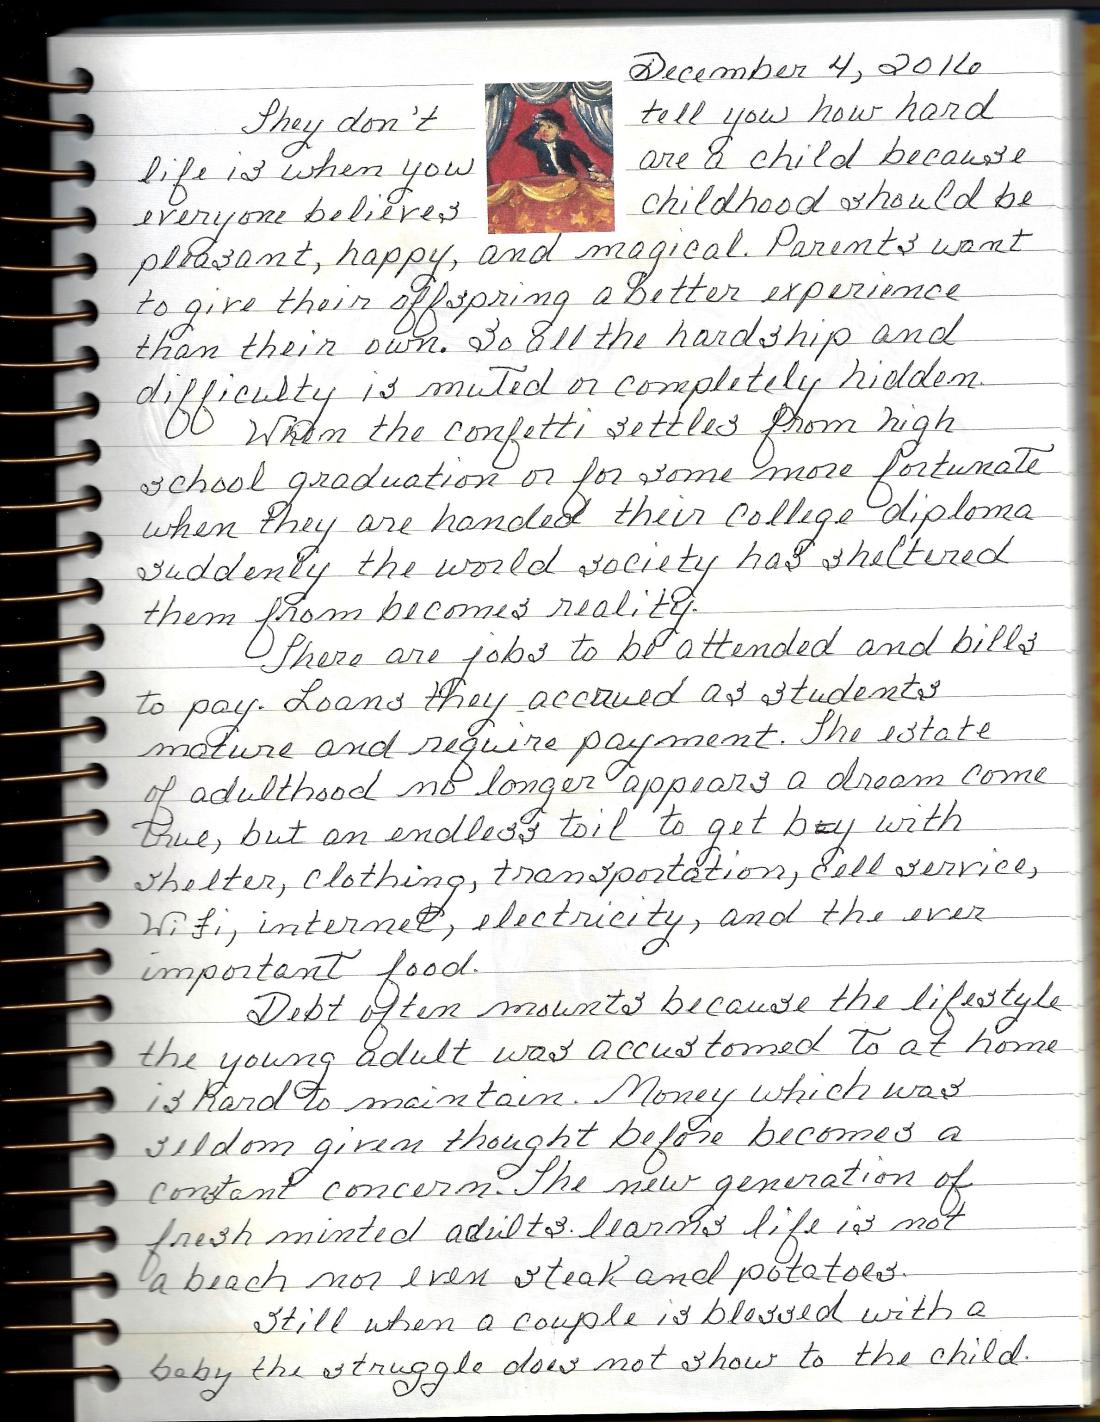 December 4, 2016
They don't tell you how hard
life is when you are a child because
everyone believes childhood should be
pleasant, happy, and magical. Parents want
to give their offspring a better experience
than their own. So all the hardship and
difficulty is muted or completely hidden.
When the confetti settles from high
school graduation or for some more fortunate
when they are handed their college diploma
suddenly the world society has sheltered
them from becomes reality.
There are jobs to be attended and bills
to pay. Loans they accrued as students
mature and require payment. The estate
of adulthood no longer appears a dream come
true, but an endless toil to get by with
shelter, clothing, transportation, cell service,
WiFi, internet, electricity, and the ever
important food.
Debt often mounts because the lifestyle
the young adult was accustomed to at home
is hard to maintain. Money which was
seldom given thought before becomes a
constant concern. The new generation of
fresh minted adults learns life is not
a beach nor even steak and potatoes.
Still when a couple is blessed with a
baby the struggle does not show to the child.